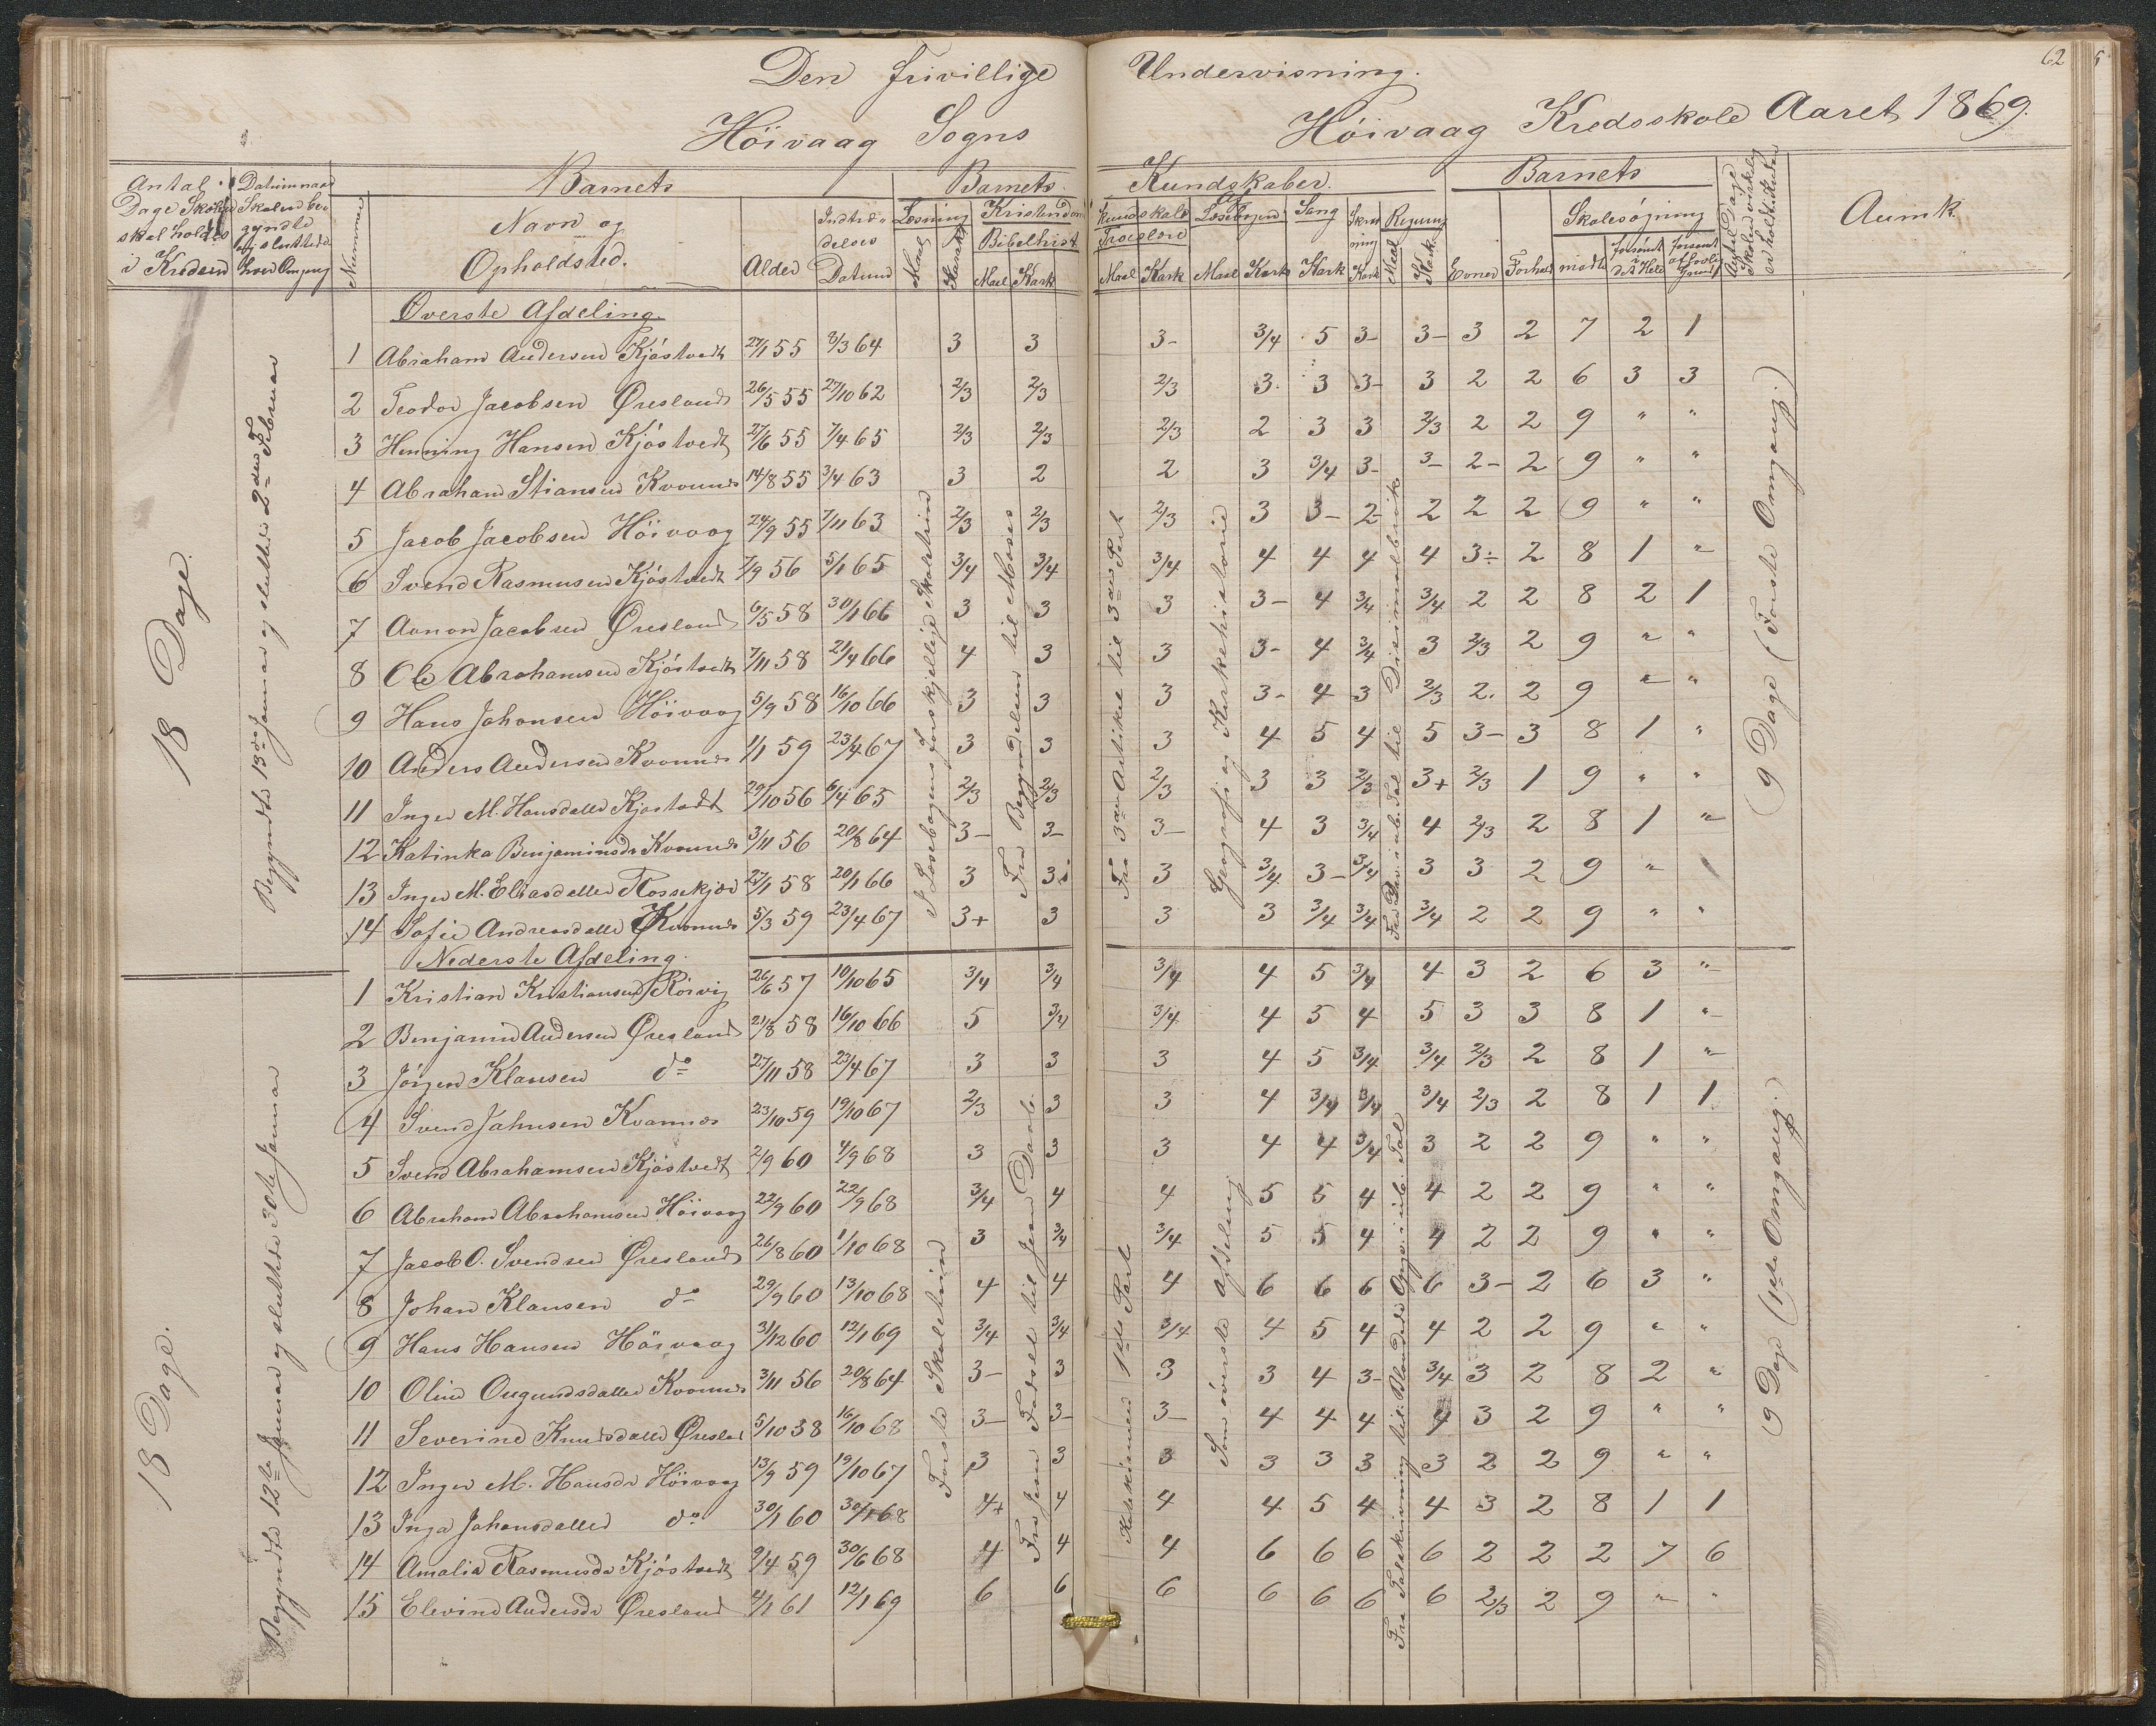 62
Den frivillige Undervisning.
Höivaag Sogns Höivaag Kredsskole Aaret 1869.
Antal Dage Skolen skal holdes i Kredsen
Datum naar Skolen begyndte og sluttede hver Omgang
Nummer
Barnets Navn og Opholdsted.
Alder
Indtrædelses Datum
Barnets Kundskaber.
Læsning Maal Karakt
Kristendomskundskab Bibelhist Maal Kark Troeslære Maal Kark
Læsebogen Maal Kark
Sang Kark
Skrivning Kark
Regning Maal Kark
Barnets
Evner Forhold
Skolesøgning mødt forsömt i det Hele forsömt af lovlig Grund
Antal Dage Skolen virkelig er holdt i Kredsen
Anmk.
18 Dage.
Begyndte 13de Januar og sluttede 2den Februar
Øverste Afdeling.
I Læsebogens forskjellige
Fra Begyndelsen til Moses
Fra 3die Artikel til 3die Part
Geografi og Kirkehistorie
9 Dage (Første Omgang.)
1 Abraham Andersen Kjöstvedt 27/1 55 3/3 64 3 3 3- 3/4 5 3- 3- 3 2 7 2 1
2 Teodor Jacobsen Øresland 26/5 55 27/10 62 2/3 2/3 2/3 3 3 3- 3 2 2 6 3 3
3 Henning Hansen Kjöstvedt 27/6 55 7/4 65 2/3 2/3 2/3 2 3 3 2/3 2 2 9 " "
4 Abraham Stiansen Kvannes 14/8 55 3/4 63 3 2 2 3 3/4 3- 3- 2- 2 9 " "
5 Jacob Jacobsen Höivaag 24/9 55 7/11 63 2/3 2/3 2/3 3 3- 2- 2 2 2 9 " "
6 Svend Rasmussen Kjöstvedt 7/9 56 5/1 65 3/4 3/4 3/4 4 4 4 4 3÷ 2 8 1 "
7 Aanon Jacobsen Øresland 6/5 58 30/1 66 3 3 3 3- 4 3/4 3/4 2 2 8 2 1
8 Ole Abrahamsen Kjöstvedt 7/11 58 21/4 66 4 3 3 3- 4 3/4 3 2/3 2 9 " "
9 Hans Johansen Höivaag 5/9 58 16/10 66 3 3 3 3- 4 3 2/3 2. 2 9 " "
10 Anders Andersen Kvannes 1/1 59 23/4 67 3 3 3 4 5 4 5 3- 3 8 1 "
11 Inger M. Hansdatter Kjöstvedt 29/10 56 6/4 65 2/3 2/3 2/3 3 3 2/3 3+ 2/3 1 9 " "
12 Katinka Benjaminsdr Kvannes 3/11 56 20/8 64 3- 3- 3- 4 3 3/4 4 2/3 2 8 1 "
13 Inger M. Eliasdatter 27/1 58 20/1 66 3 3 3 3/4 3- 3/4 3 3 2 9 "
14 Sofie Andreasdatter Kvannes 5/3 59 23/4 67 3+ 3 3 3 3/4 3/4 3/4 2 2 9 " "
18 Dage.
Begyndte 12te Januar og sluttede 30te Januar
Nederste Afdeling.
Første Skoletrin
Fra Jesu Fødsel til Jesu Daab.
Katekismen 1ste Part
Som överste Afdeling
9 Dage (1ste Omgang.)
1 Kristian Kristiansen Rörvig 26/6 57 10/10 65 3/4 3/4 3/4 4 5 3/4 4 3 2 6 3 "
2 Benjamin Andersen Øresland 21/8 58 16/10 66 5 3/4 3/4 4 5 4 5 3 3 8 1 "
3 Jörgen Klausen do 27/11 58 23/4 67 3 3 3 4 5 3/4 3/4 2/3 2 8 1 "
4 Svend Jahnsen Kvannes 23/10 59 19/10 67 2/3 3 3 4 3/4 3/4 3/4 2/3 2 8 1 1
5 Svend Abrahamsen Kjöstvedt 2/9 60 4/9 68 3 3 3 4 4 3/4 3 2 2 9 " "
6 Abraham Abrahamsen Höivaag 22/9 60 22/9 68 3/4 4 4 5 5 4 4 2 2 9 " "
7 Jacob O. Svendsen Øresland 26/8 60 1/10 68 3 3/4 3/4 5 5 4 4 2 2 9 " "
8 Johan Klausen do 29/9 60 13/10 68 4 4 4 6 6 6 6 3- 2 6 3 "
9 Hans Hansen Höivaag 31/12 60 12/1 69 3/4 3/4 3/4 4 5 4 4 2 2 9 " "
10 Oline Kvannes 3/11 56 20/8 64 3- 3 3 3 4 3- 3/4 3 2 8 2 "
11 Severine Knudsdatter Øresland 5/10 58 16/10 68 3- 3- 3- 4 4 4 4 3 2 9 " "
12 Inger M. Hansdr Höivaag 13/9 59 19/10 67 3 3 3 3 3 3 3 2 2 9 " "
13 Inga Johansdatter do 30/1 60 30/1 68 4+ 4 4 4 5 4 4 3 2 8 1 1
14 Amalia Rasmusdr Kjöstvedt 9/4 59 30/6 68 4 4 4 6 6 6 6 2 2 2 7 6
15 Elevine Andersdr Øresland 4/1 61 12/1 69 6 6 6 6 6 6 6 2/3 2 9 " "